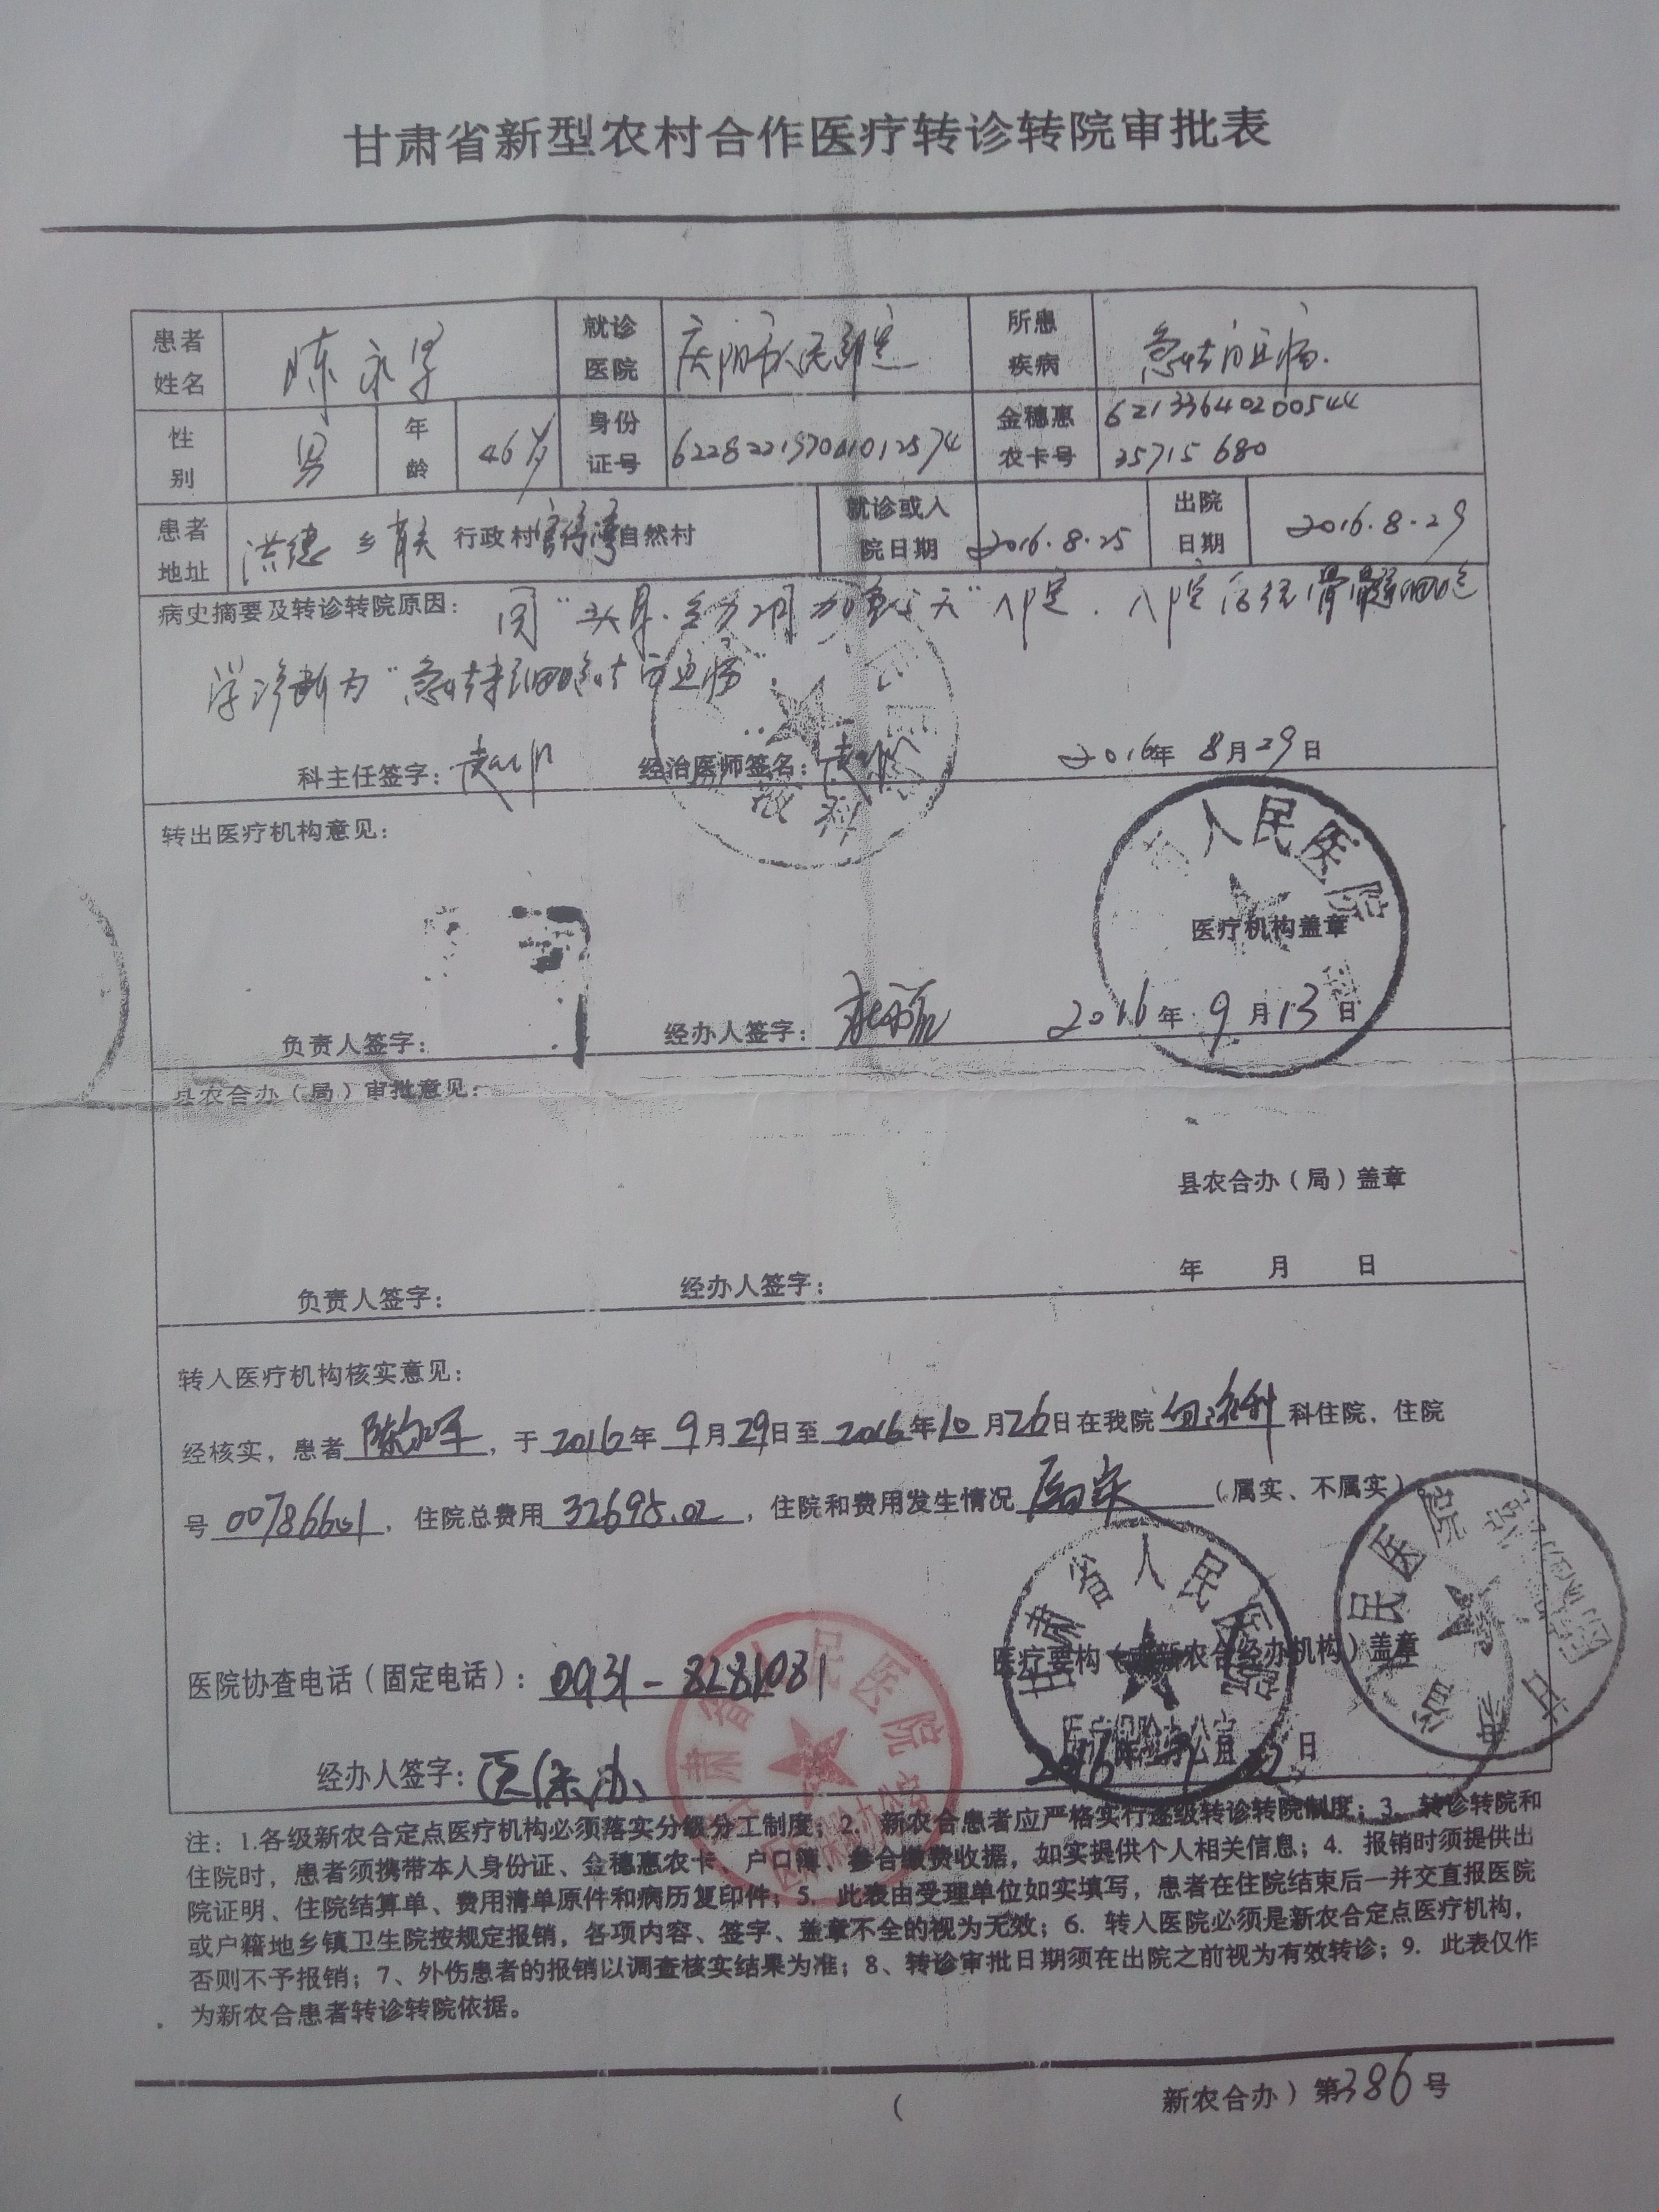 甘肃省新型农村合作医疗转诊转院审批表
患者姓名 陈永军 就诊医院 庆阳市人民医院 所患疾病 急性白血病.
性别 男 年龄 46岁 身份证号 金穗惠农卡号 6213364020054435715680
患者地址 洪德 乡 行政村 自然村 就诊或入院日期 2016.8.25 出院日期 2016.8.29
病史摘要及转诊转院原因: 因"头晕、全身乏力 加重 天"入院. 入院后经骨髓细胞
学诊断为"急性 细胞性白血病".
科主任签字: 经治医师签名: 2016年 8月29日
转出医疗机构意见:
人民医院
医疗机构盖章
负责人签字: 经办人签字: 2016年 9月13日
县农合办(局)审批意见:
县农合办(局)盖章
负责人签字: 经办人签字: 年 月 日
转入医疗机构核实意见:
经核实, 患者 陈永军, 于 2016年 9月29日至 2016年10月26日在我院 血液科 科住院, 住院
号 , 住院总费用 32695.02, 住院和费用发生情况 属实 (属实、不属实)
甘肃省人民医院
医院协查电话(固定电话): 0931-8281081 医疗机构( 新农合经办机构)盖章
医疗保险办公室
经办人签字: 医保办 2016 日
注: 1.各级新农合定点医疗机构必须落实分级分工制度; 2. 新农合患者应严格实行逐级转诊转院制度; 3. 转诊转院和
住院时, 患者须携带本人身份证、金穗惠农卡、户口簿、参合缴费收据, 如实提供个人相关信息; 4. 报销时须提供出
院证明、住院结算单、费用清单原件和病历复印件; 5. 此表由受理单位如实填写, 患者在住院结束后一并交直报医院
或户籍地乡镇卫生院按规定报销, 各项内容、签字、盖章不全的视为无效; 6. 转入医院必须是新农合定点医疗机构,
否则不予报销; 7、外伤患者的报销以调查核实结果为准; 8、转诊审批日期须在出院之前视为有效转诊; 9. 此表仅作
为新农合患者转诊转院依据。
( 新农合办) 第386号